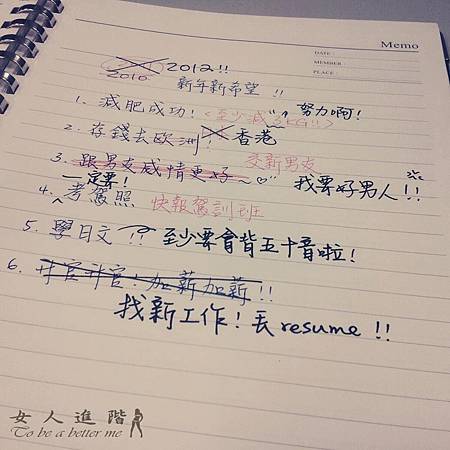 Memo
DATE :
MEMBER :
PLACE :
2010 2012!!
新年新希望 !!
1. 減肥成功! <至少減3KG!!> 努力啊!
2. 存錢去歐洲! 香港
3. 跟男友感情更好~♡ 交新男友 我要好男人!!
一定要!
4. 考駕照 快報駕訓班
5. 學日文 ?? 至少要會背五十音啦!
6. 升官升官!加薪加薪!!
找新工作! 丟resume !!
女人進階
To be a better me